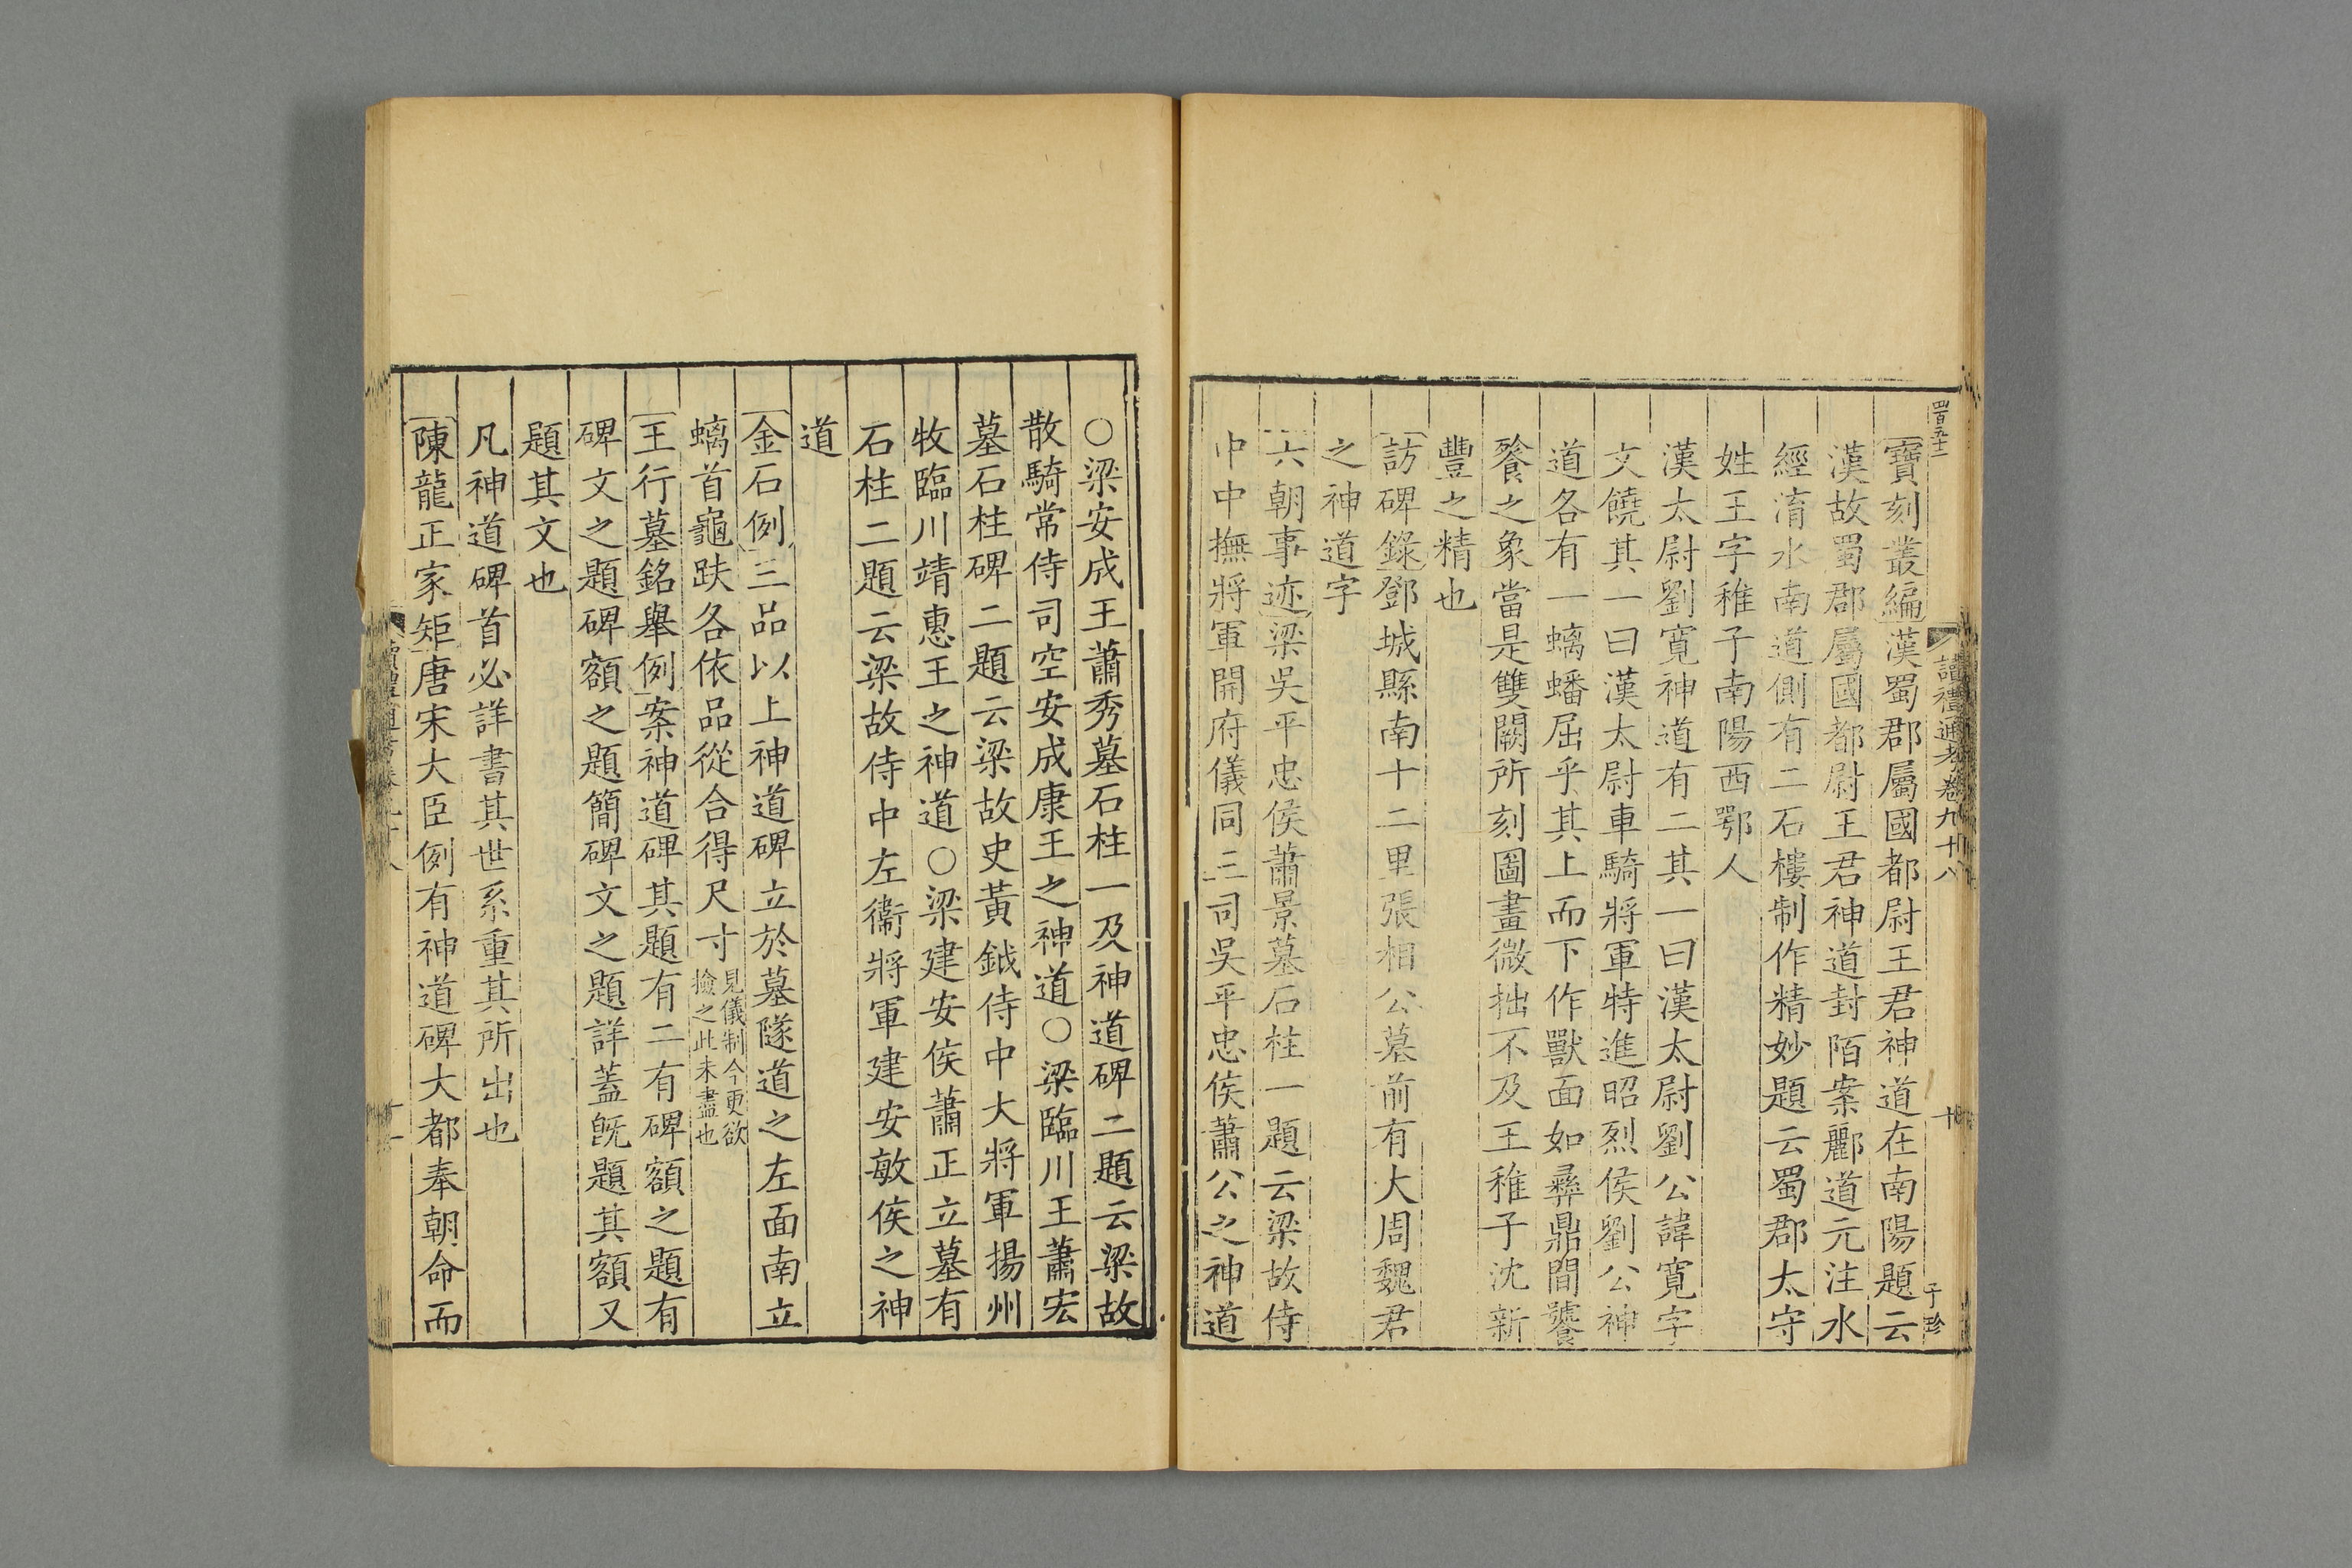 四百五十一
讀禮通考卷九十八
十
子珍
寶刻叢編漢蜀郡屬國都尉王君神道在南陽題云
漢故蜀郡屬國都尉王君神道封陌案酈道元注水
經淯水南道側有二石樓制作精妙題云蜀郡太守
姓王字稚子南陽西鄂人
漢太尉劉寬神道有二其一曰漢太尉劉公諱寬字
文饒其一曰漢太尉車騎將軍特進昭烈侯劉公神
道各有一螭蟠屈乎其上而下作獸面如彞鼎間饕
餮之象當是雙闕所刻圖畫微拙不及王稚子沈新
豐之精也
訪碑錄鄧城縣南十二里張相公墓前有大周魏君
之神道字
六朝事迹梁吳平忠侯蕭景墓石柱一題云梁故侍
中中撫將軍開府儀同三司吳平忠侯蕭公之神道
○梁安成王蕭秀墓石柱一及神道碑二題云梁故
散騎常侍司空安成康王之神道○梁臨川王蕭宏
墓石柱碑二題云梁故史黃鉞侍中大將軍揚州
牧臨川靖惠王之神道○梁建安侯蕭正立墓有
石柱二題云梁故侍中左衞將軍建安敏侯之神
道
金石例三品以上神道碑立於墓隧道之左面南立
螭首龜趺各依品從合得尺寸見儀制今更欲
撿之此未盡也
王行墓銘舉例案神道碑其題有二有碑額之題有
碑文之題碑額之題簡碑文之題詳蓋旣題其額又
題其文也
凡神道碑首必詳書其世系重其所出也
陳龍正家矩唐宋大臣例有神道碑大都奉朝命而